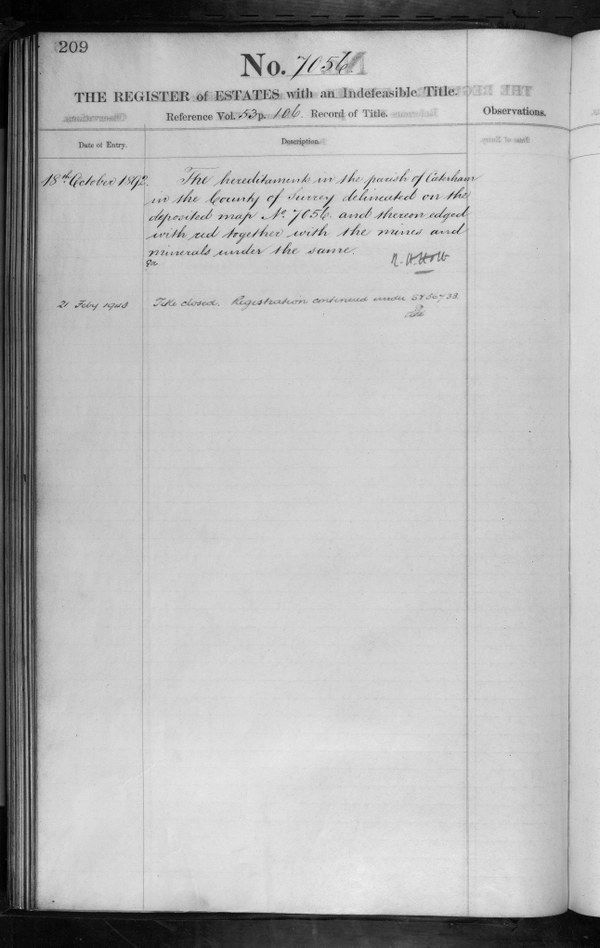 209
No. 7056
THE REGISTER of ESTATES with an Indefeasible Title.
Reference Vol. 53 p. 106. Record of Title.
Observations.
Date of Entry.
Description.
18th October 1892.
The hereditament in the parish of Caterham
in the County of Surrey delineated on the
deposited map No. 7056 and thereon edged
with red together with the mines and
minerals under the same.
21 Feby 1948
Title closed. Registration continued under